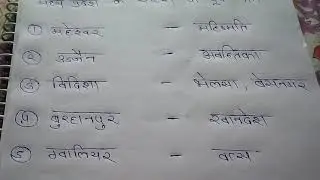 मध्य प्रदेश के
① महेश्वर - महिष्मति
② उज्जैन - अवन्तिका
③ विदिशा - भेलसा, बेसनगर
④ बुरहानपुर - खानदेश
⑤ ग्वालियर - वत्स